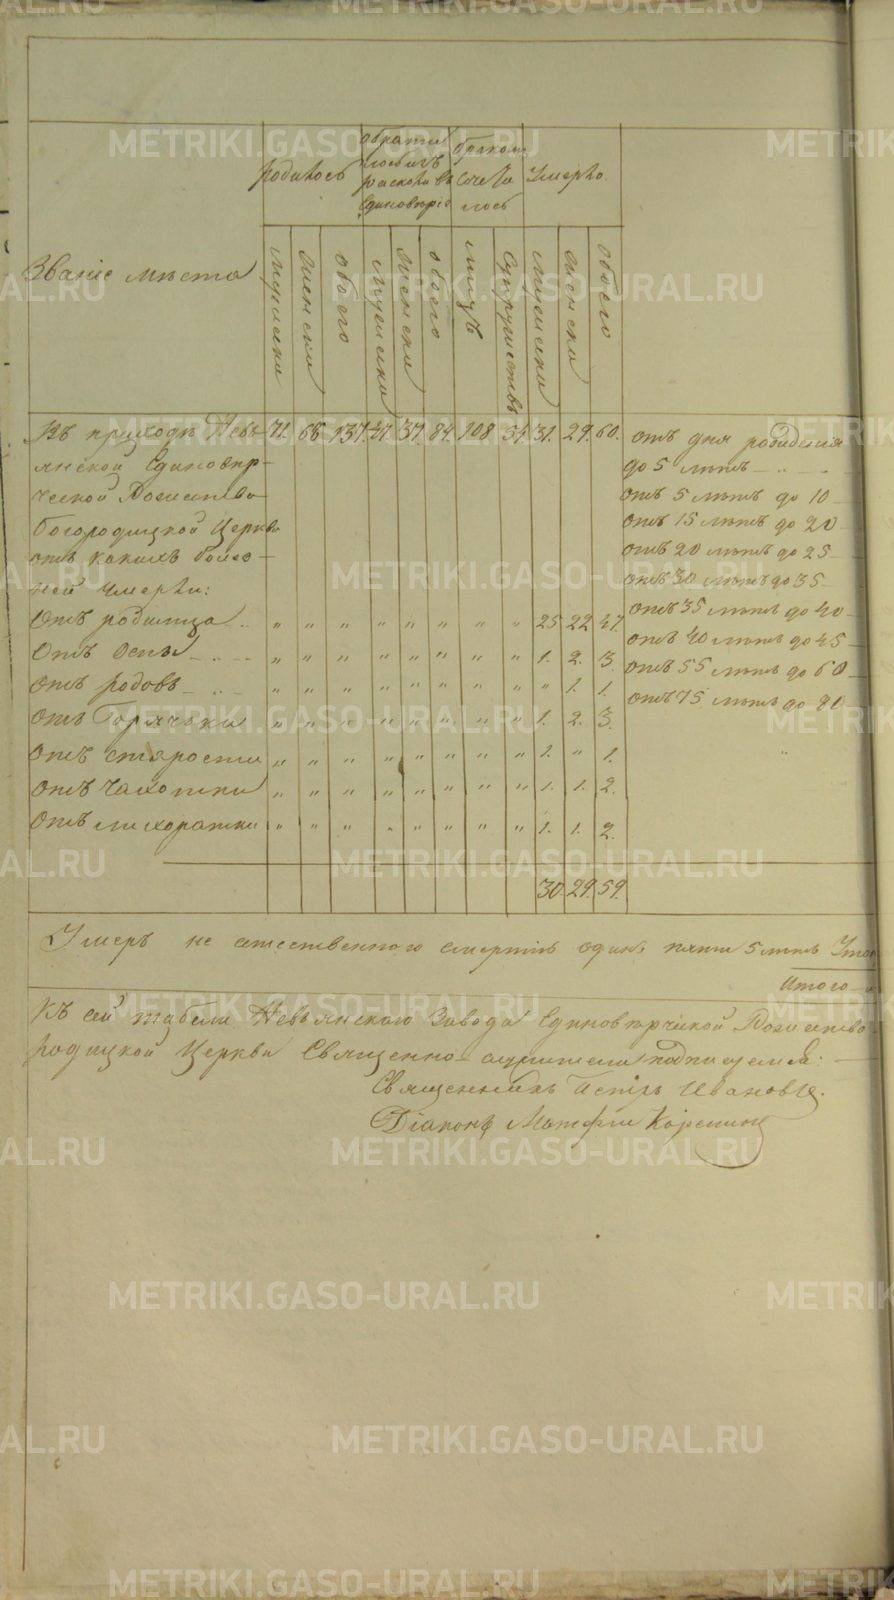 METRIKI.GASO-URAL.RU
Званіе мѣста
родилось
обратившихъ раскола въ Единовѣріе
бракомъ сочеталось
умерло
мужеска
женска
обоего
мужеска
женска
обоего
лицъ
супружествъ
мужеска
женска
обоего
Въ приходѣ Невь- 71. 66 137. 47. 37. 84. 108 54. 31. 29. 60. отъ дня рождения
янской Единовѣр- до 5 лѣтъ
ческой Рождество отъ 5 лѣтъ до 10
Богородицкой Церкви отъ 15 лѣтъ до 20
отъ какихъ болез- отъ 20 лѣтъ до 25
ней умерли: отъ 30 лѣтъ до 35
Отъ родимца „ „ „ „ „ „ „ „ 25 22 47. отъ 35 лѣтъ до 40
Отъ Оспы „ „ „ „ „ „ „ „ 1. 2. 3. отъ 40 лѣтъ до 45
отъ 55 лѣтъ до 60
Отъ родовъ „ „ „ „ „ „ „ „ „ 1. 1. отъ 75 лѣтъ до 80
Отъ Горячьки „ „ „ „ „ „ „ „ 1. 2. 3.
Отъ старости „ „ „ „ „ „ „ „ 1. „ 1.
Отъ Чахотки „ „ „ „ „ „ „ „ 1. 1. 2.
Отъ лихоратки „ „ „ „ „ „ „ „ 1. 1. 2.
30. 29. 59.
Умеръ не естественного смертію одинъ 5 лѣтъ
Итого
Къ сей табели Невьянскаго Завода Единовѣрческой Рождество
родицкой Церкви Священно-служители подписуемся:
Священникъ Петръ Ивановъ.
Діаконъ Матфій